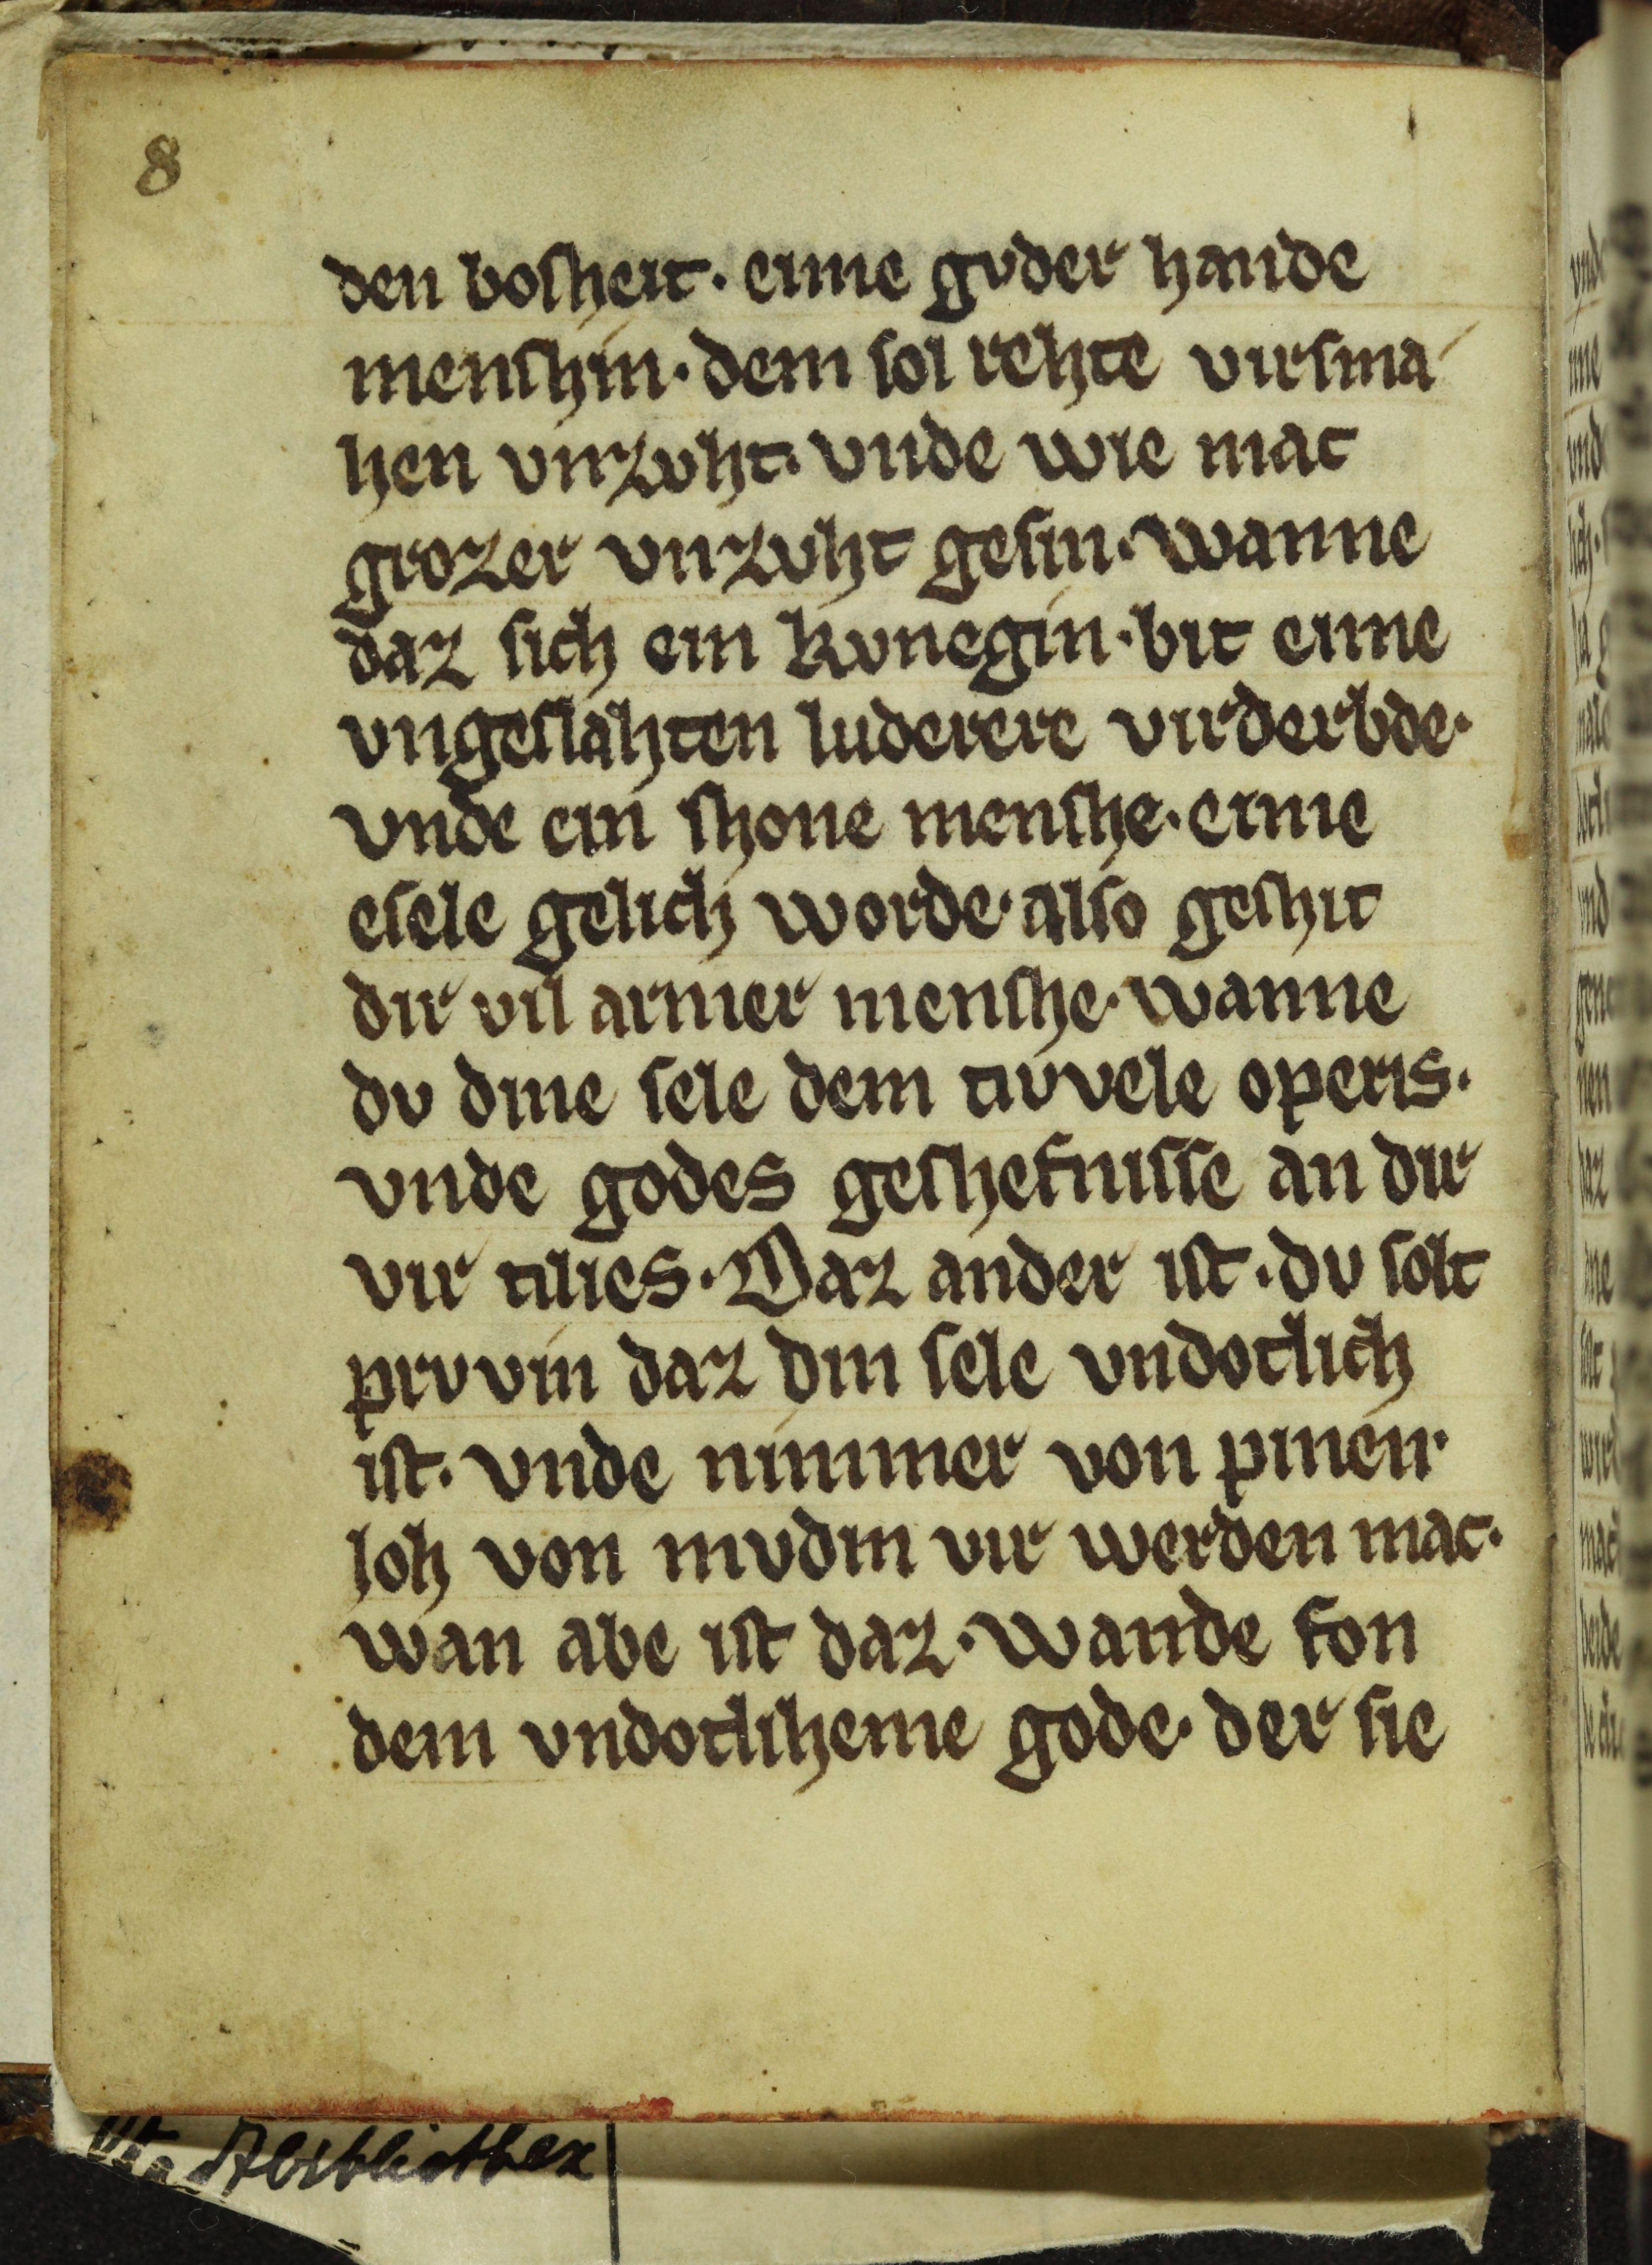 8
den bosheit. eime guder hande
menschin. dem sol rehte virsma
hen vnzvht. vnde wie mac
grozer vnzvht gesin. wanne
daz sich ein kvnegin. bit eime
vngeslahten luderere virderbde.
vnde ein shone menshe. eime
esele gelich worde. also geshit
dir vil armer menshe. wanne
dv dine sele dem tivvele operis.
vnde godes geshefnisse an dir
vir tilies. Daz ander ist. dv solt
prvvin daz din sele vndotlich
ist. vnde nimmer von pinen.
Joh von mvdin vir werden mac.
wan abe ist daz. wande fon
dem vndotliheme gode. der sie
Stadtbibliothek